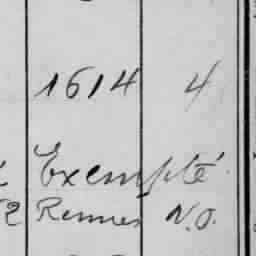 1614 4
Exempté
2 Rennes N.O.